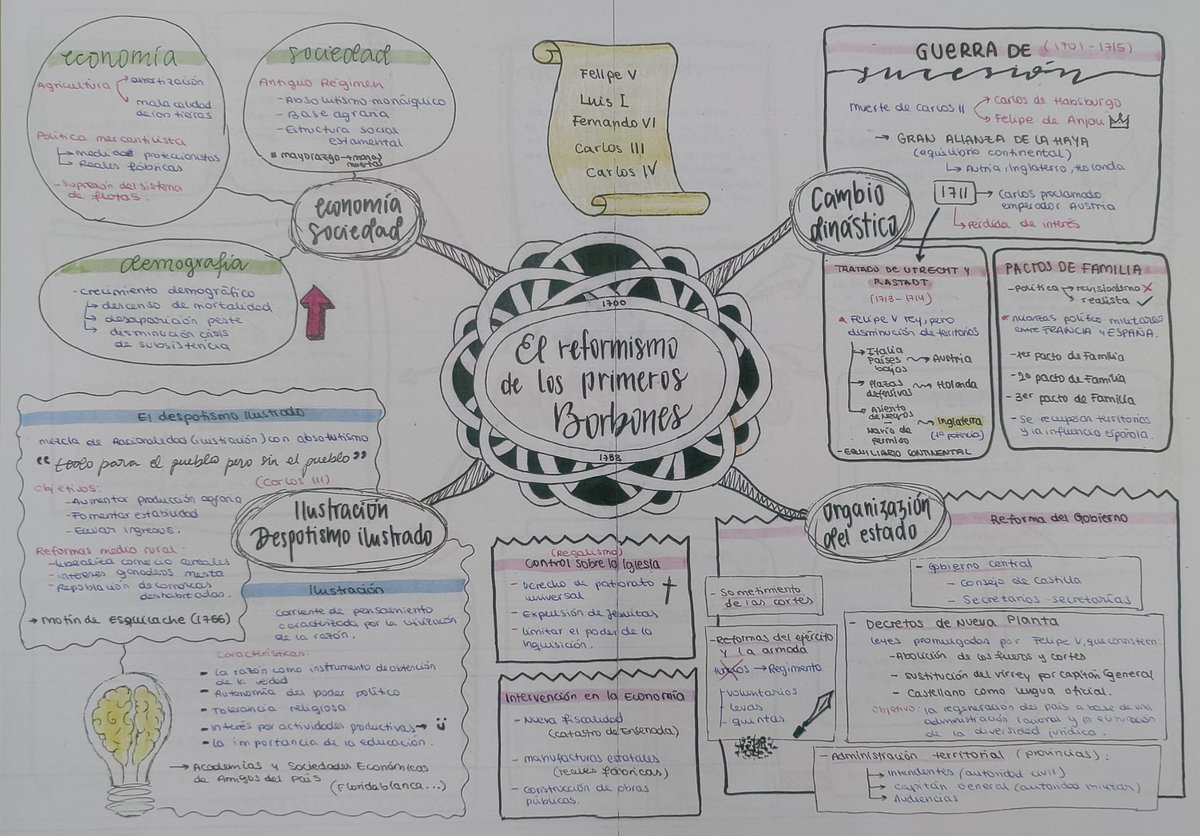 El reformismo
de los primeros
Borbones
1700
1788
Felipe V
Luis I
Fernando VI
Carlos III
Carlos IV
economía
sociedad
economía
Agricultura
amortización
mala calidad
de las tierras
Política mercantilista
medidas proteccionistas
Reales fábricas
- Supresión del sistema
de flotas.
sociedad
Antiguo Régimen
- Absolutismo monárquico
- Base agraria
- Estructura social
estamental
mayorazgo → manos
muertas
demografía
- crecimiento demográfico
descenso de mortalidad
desaparición peste
disminución crisis
de subsistencia
Cambio
dinástico
GUERRA DE (1701-1715)
sucesión
muerte de Carlos II
Carlos de Habsburgo
Felipe de Anjou
→ GRAN ALIANZA DE LA HAYA
(equilibrio continental)
Autria, Inglaterra, Holanda
1711
Carlos proclamado
emperador AUSTRIA
Perdida de interés
TRATADO DE UTRECHT Y
RASTADT
(1713-1714)
Felipe V rey, pero
disminución de territorios
Italia
Países
bajos
Austria
Plazas
defensivas
Holanda
Asiento
de Negros
Navío de
permiso
Inglaterra
(1ª potencia)
- EQUILIBRIO CONTINENTAL
PACTOS DE FAMILIA
- Política → revisionismo X
realista ✓
político militares
entre FRANCIA y ESPAÑA.
- 1er pacto de Familia
- 2º pacto de Familia
- 3er pacto de Familia
- Se recuperan territorios
y la influencia española.
Ilustración
Despotismo ilustrado
El despotismo Ilustrado
mezcla de Racionalidad (ilustración) con absolutismo
"todo para el pueblo pero sin el pueblo"
(Carlos III)
Objetivos:
- Aumentar producción agraria
- Fomentar estabilidad
- ingresos.
Reformas medio rural:
- Liberaliza comercio cereales
- intereses ganaderos mesta
- Repoblación de comarcas
deshabitadas.
→ Motín de Esquilache (1766)
Ilustración
corriente de pensamiento
caracterizada por la utilización
de la razón.
Características:
- la razón como instrumento de obtención
de la verdad
- Autonomía del poder político
- Tolerancia religiosa
- Interés por actividades productivas →
- la importancia de la educación.
→ Academias y Sociedades Económicas
de Amigos del País
(Floridablanca...)
(Regalismo)
Control sobre la Iglesia
- Derecho de patronato
universal
- Expulsión de Jesuitas
- Limitar el poder de la
Inquisición.
Intervención en la Economía
- Nueva fiscalidad
(Catastro de Ensenada)
- manufacturas estatales
(reales fábricas)
- Construcción de obras
públicas.
organización
del estado
Reforma del Gobierno
- Sometimiento
de las cortes
- Reformas del ejército
y la armada
tercios → Regimento
- voluntarios
- levas
- quintas
- Gobierno central
- Consejo de Castilla
- Secretarios-secretarías
- Decretos de Nueva Planta
leyes promulgadas por Felipe V, que consisten:
- Abolición de los fueros y cortes
- sustitución del virrey por capitán General
- Castellano como lengua oficial.
Objetivo: la regeneración del país a base de una
administración racional y la eliminación
de la diversidad jurídica.
- Administración territorial (provincias):
Intendentes (autoridad civil)
Capitán General (autoridad militar)
Audiencias